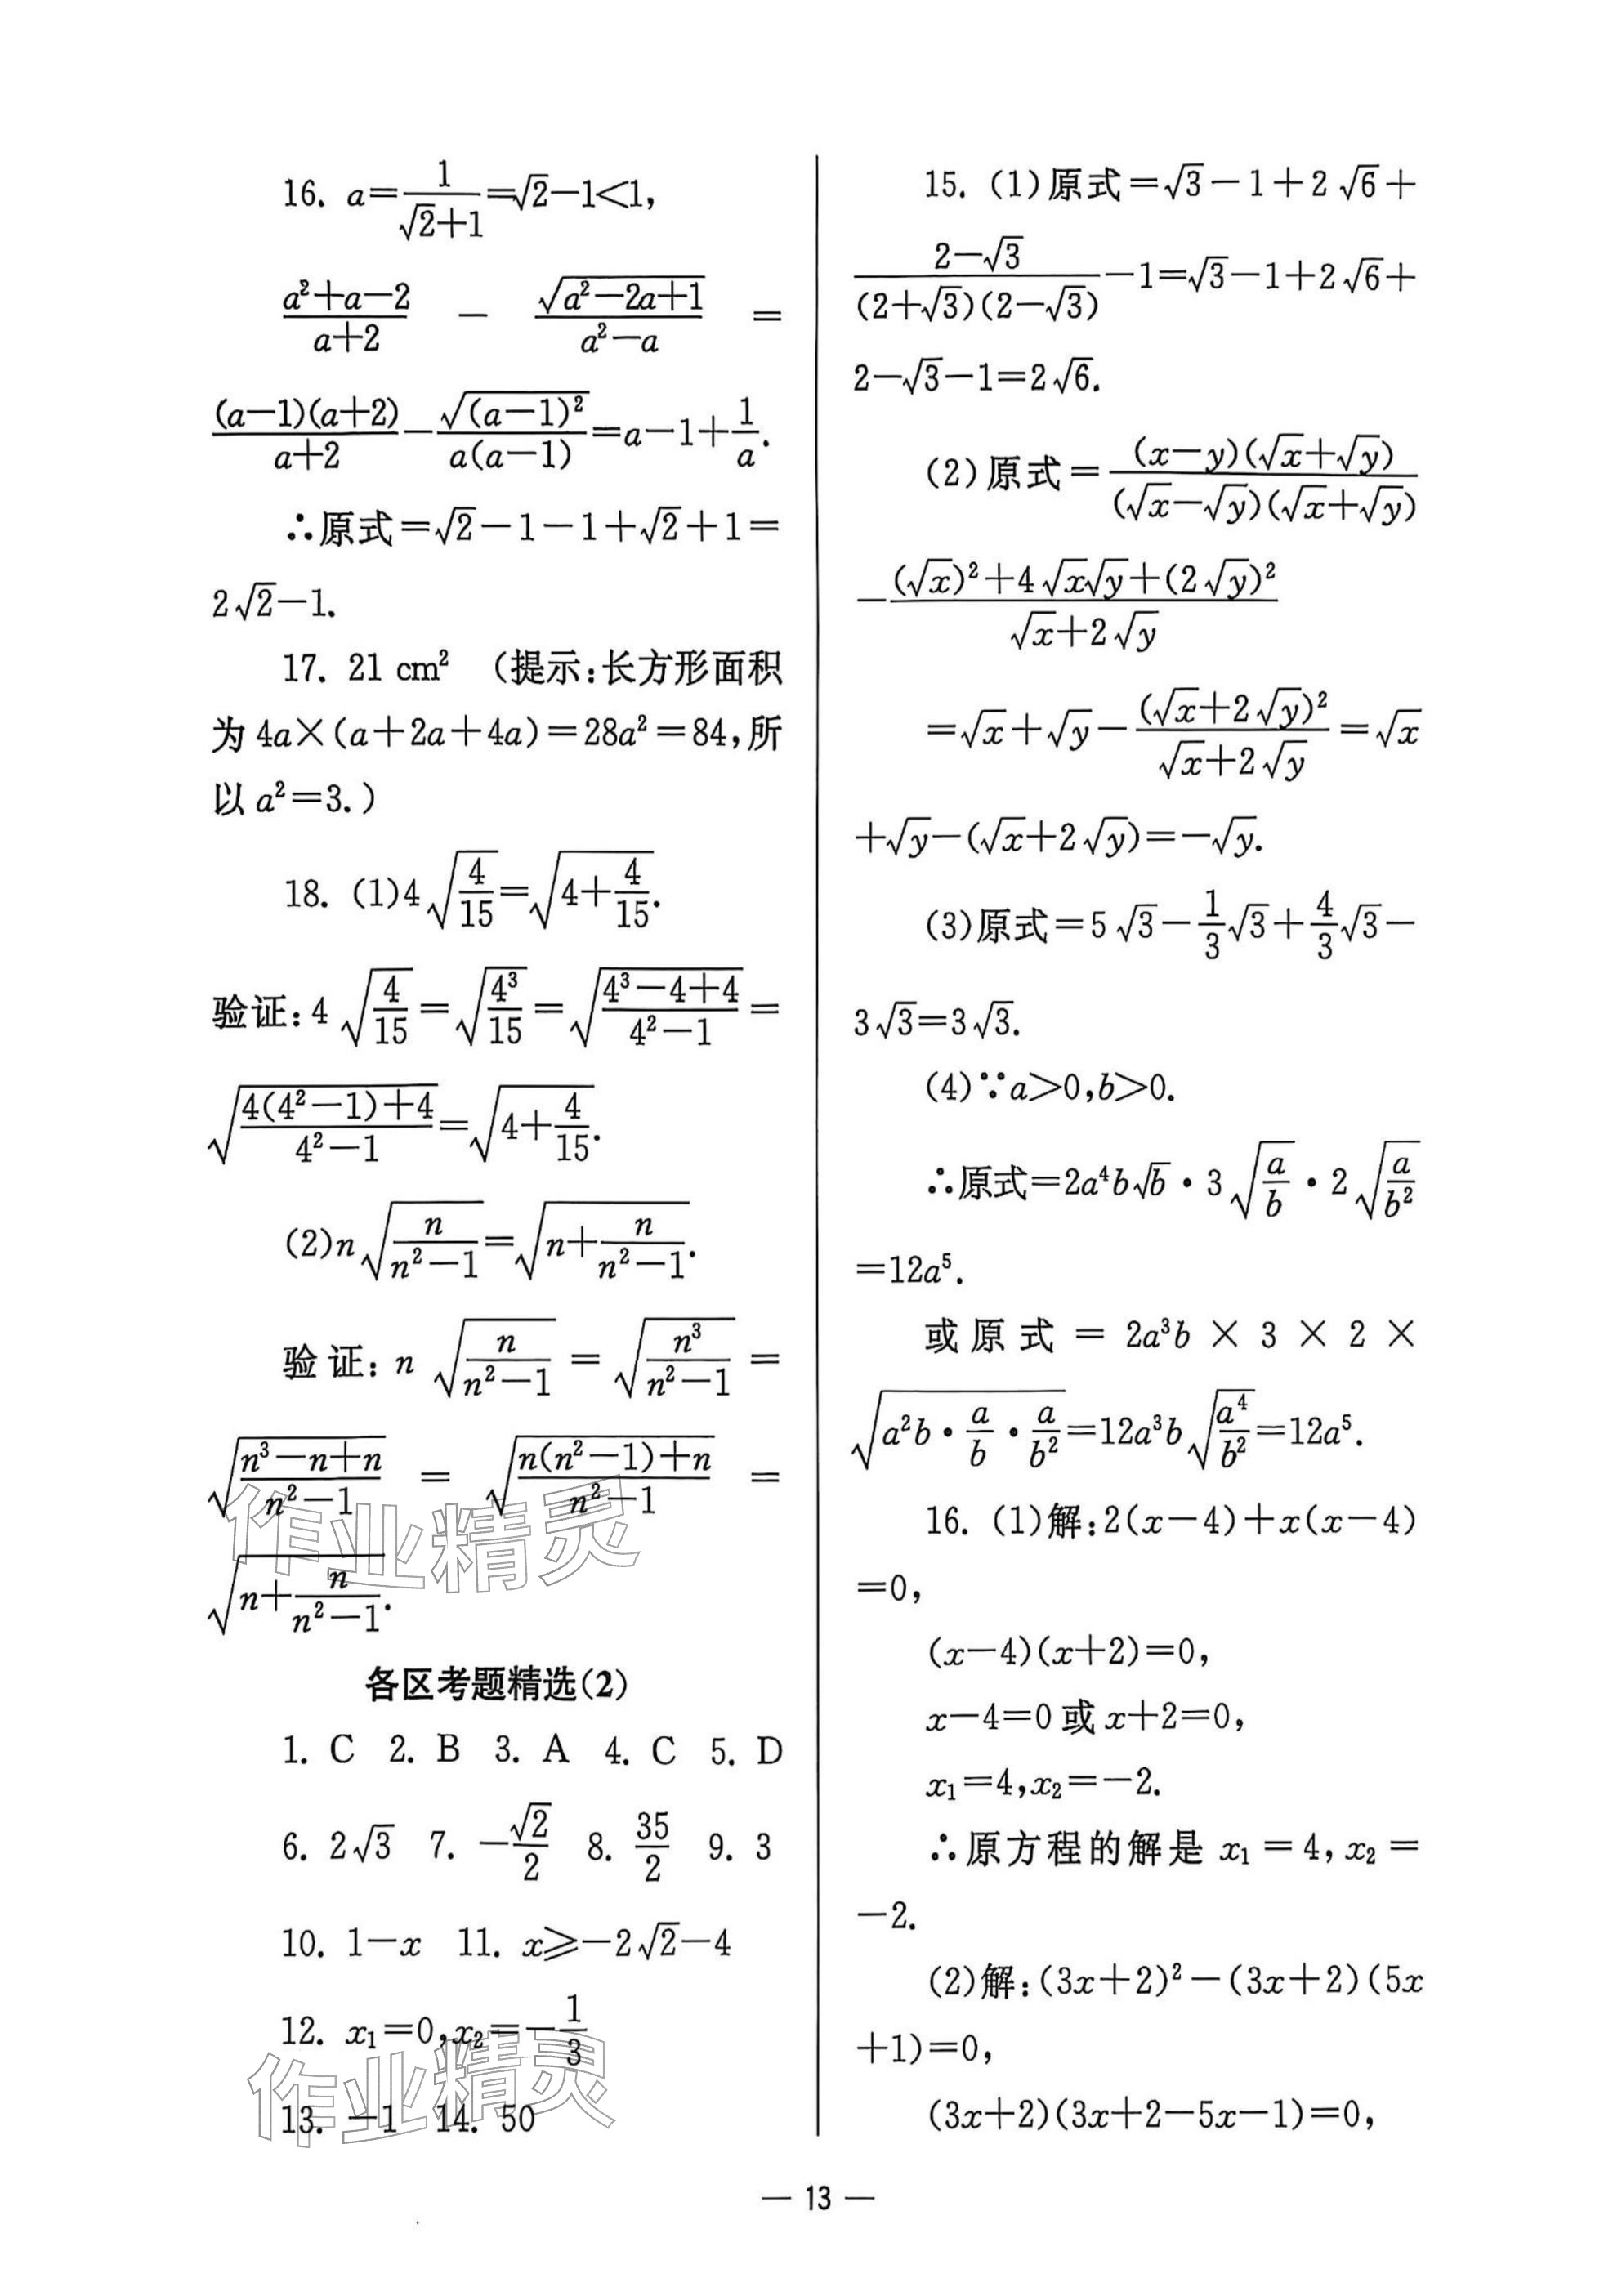 16. a=1/(√2+1)=√2-1<1,
(a²+a-2)/(a+2) - √(a²-2a+1)/(a²-a) =
(a-1)(a+2)/(a+2) - √((a-1)²)/(a(a-1)) =a-1+1/a.
∴原式=√2-1-1+√2+1=
2√2-1.
17. 21 cm² (提示:长方形面积
为 4a×(a+2a+4a)=28a²=84,所
以 a²=3.)
18. (1)4√(4/15)=√(4+4/15).
验证:4√(4/15)=√(4³/15)=√((4³-4+4)/(4²-1))=
√((4(4²-1)+4)/(4²-1))=√(4+4/15).
(2)n√(n/(n²-1))=√(n+n/(n²-1)).
验证:n√(n/(n²-1))=√(n³/(n²-1))=
√((n³-n+n)/(n²-1))=√((n(n²-1)+n)/(n²-1))=
√(n+n/(n²-1)).
作业精灵
各区考题精选(2)
1. C 2. B 3. A 4. C 5. D
6. 2√3 7. -√2/2 8. 35/2 9. 3
10. 1-x 11. x⩾-2√2-4
12. x₁=0,x₂=-1/3
作业精灵
13. -1 14. 50
15. (1)原式=√3-1+2√6+
(2-√3)/((2+√3)(2-√3))-1=√3-1+2√6+
2-√3-1=2√6.
(2)原式=(x-y)(√x+√y)/((√x-√y)(√x+√y))
-((√x)²+4√x√y+(2√y)²)/(√x+2√y)
=√x+√y-(√x+2√y)²/(√x+2√y)=√x
+√y-(√x+2√y)=-√y.
(3)原式=5√3-1/3√3+4/3√3-
3√3=3√3.
(4)∵a>0,b>0.
∴原式=2a⁴b√b·3√(a/b)·2√(a/b²)
=12a⁵.
或原式=2a³b×3×2×
√(a²b·a/b·a/b²)=12a³b√(a⁴/b²)=12a⁵.
16. (1)解:2(x-4)+x(x-4)
=0,
(x-4)(x+2)=0,
x-4=0 或 x+2=0,
x₁=4,x₂=-2.
∴原方程的解是 x₁=4,x₂=
-2.
(2)解:(3x+2)²-(3x+2)(5x
+1)=0,
(3x+2)(3x+2-5x-1)=0,
— 13 —